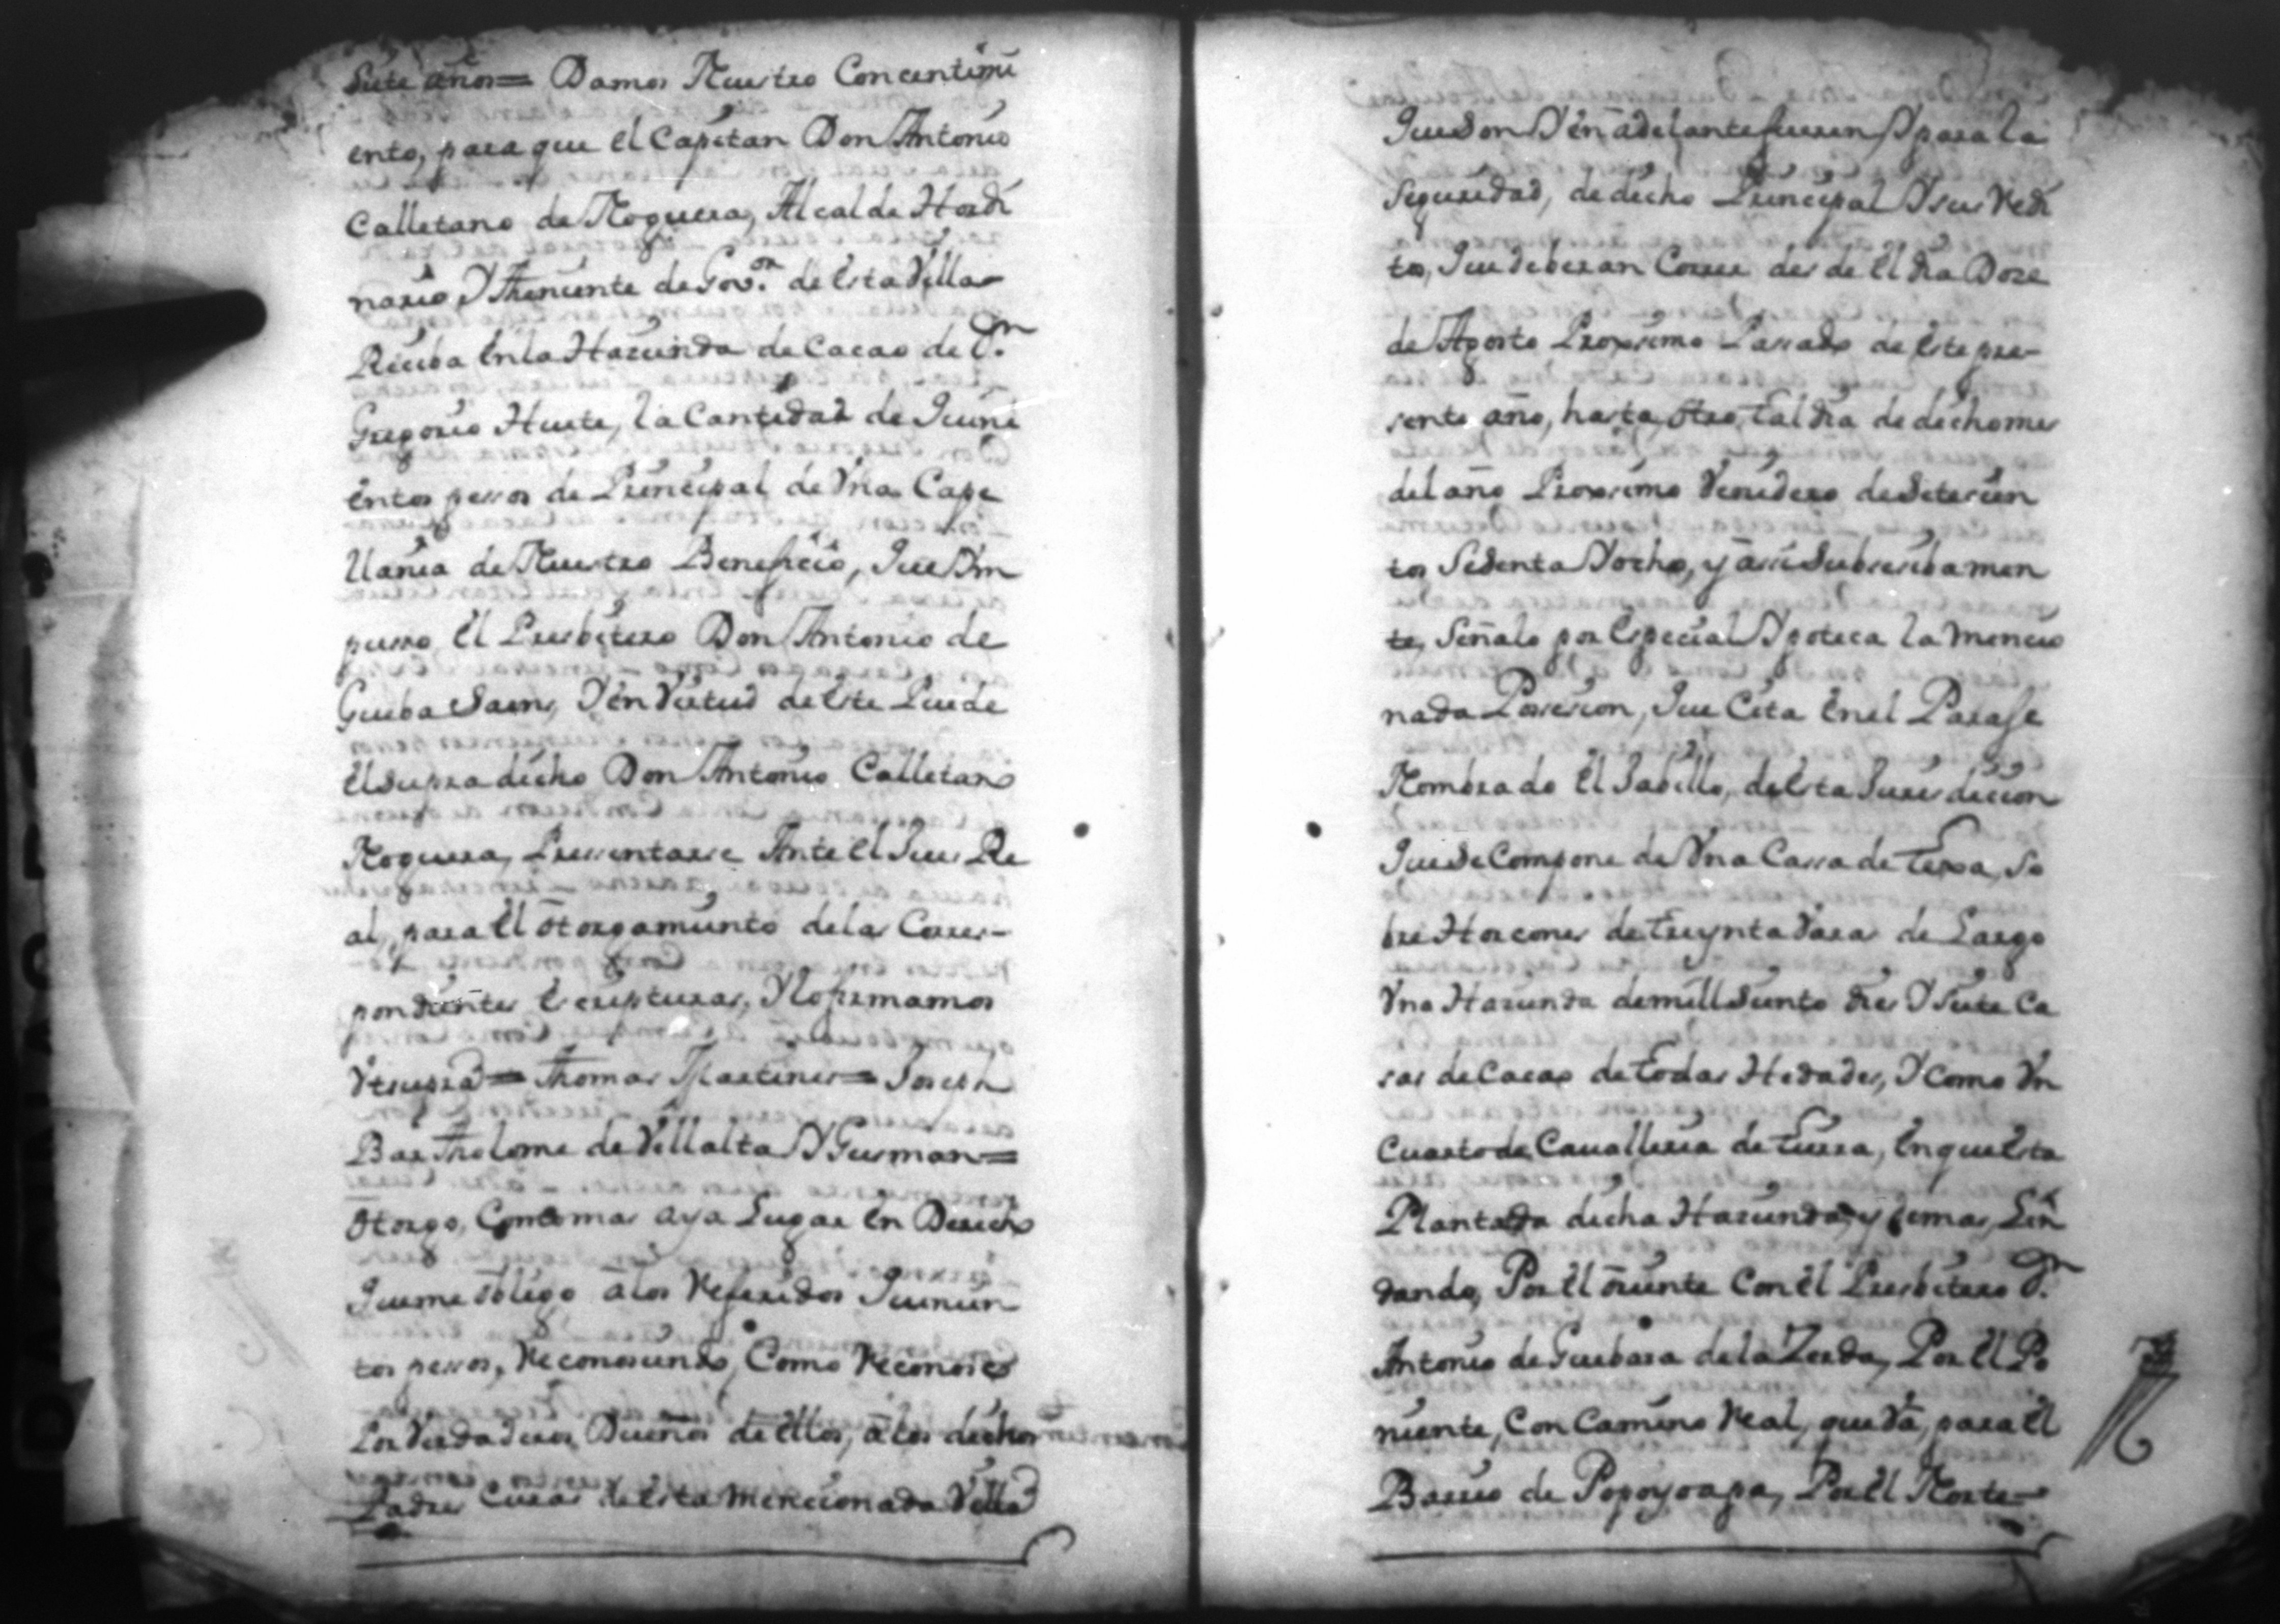 Siete años = Damos Nuestro Concentimi
ento, para que el Capitan Don Antonio
Calletano de Noguera, Alcalde Hordi
nario, Y Theniente de Gov.or de esta Villa
Reciba en la Hacienda de Cacao de D.n
Gregorio Huete, la Cantidad de Quini
entos pessos de Principal de Vna Cape
llania de Nuestro Beneficio, Que Ym
pusso el Presbitero Don Antonio de
Gueba Saens, Y en Virtud de este Puede
el Supra dicho Don Antonio Calletano
Noguera, Pressentarse Ante el Jues Re
al, para el otorgamiento de las Corres-
pondientes escripturas, Y lo firmamos
Vt supra = Thomas Martines = Joseph
Bartholome de Villalta Y Gusman =
Otorgo, Como mas aya Lugar en Derecho
Que me obligo a los Referidos Quinien
tos pessos, Reconosiendo, Como Reconosco
Por Verdaderos Dueños de ellos, a los dichos
Padres Curas de esta Mencionada Villa
Que Son Y en adelante fueren Y para la
Seguridad, de dicho Principal Y sus Redi
tos, Que deberan Correr desde el dia Doze
de Agosto Proxsimo Passado de este pre-
sente año, hasta otro tal dia de dicho mes
del año Proxsimo Venidero de Setecien
tos Sesenta Y ocho, y assi Subsesibamen
te, Señalo por Especial Ypoteca la Mencio
nada Possesion, Que Cita en el Paraje
Nombrado el Jabillo, de esta Jurisdicion
Que Se Compone de Vna Cassa de texa, So
bre Horcones de treynta Varas de Largo
Vna Hacienda de mill Siento dies Y Siete Ca
sas de Cacao de todas Hedades, Y Como Vn
Cuarto de Cavalleria de tierra, en que esta
Plantada dicha Hacienda, y demas, Lin
dando, Por el oriente Con el Presbitero D.n
Antonio de Guebara de la Zerda, Por el Po
niente, Con Camino Real, que Va, para el
Barrio de Popoyoapa, Por el Norte